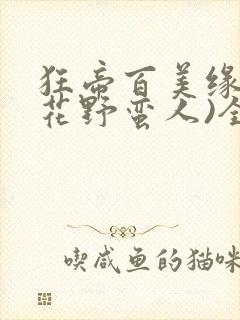 狂帝百美缘
花野蛮人)全
喫咸鱼的猫咪